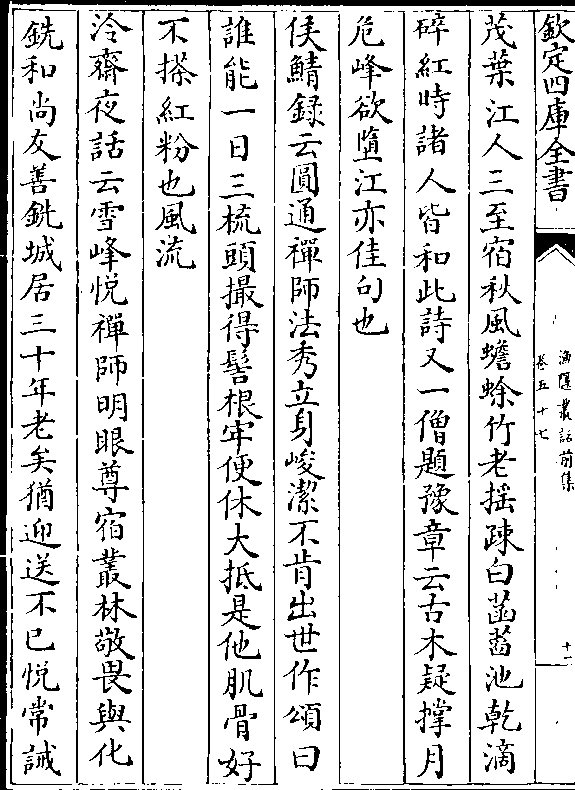 欽定四庫全書
漁隱叢話前集
卷五十七
十一
茂葉江人三至宿秋風蟾蜍竹老揺疎白菡萏池乾滴
碎紅時諸人皆和此詩又一僧題豫章云古木疑撑月
危峰欲墮江亦佳句也
侯鯖録云圓通禪師法秀立身峻潔不肯出世作頌曰
誰能一日三梳頭撮得髻根牢便休大抵是他肌骨好
不搽紅粉也風流
泠齋夜話云雪峰悦禪師明眼尊宿叢林敬畏與化
銑和尚友善銑城居三十年老矣猶迎送不已悦常誡